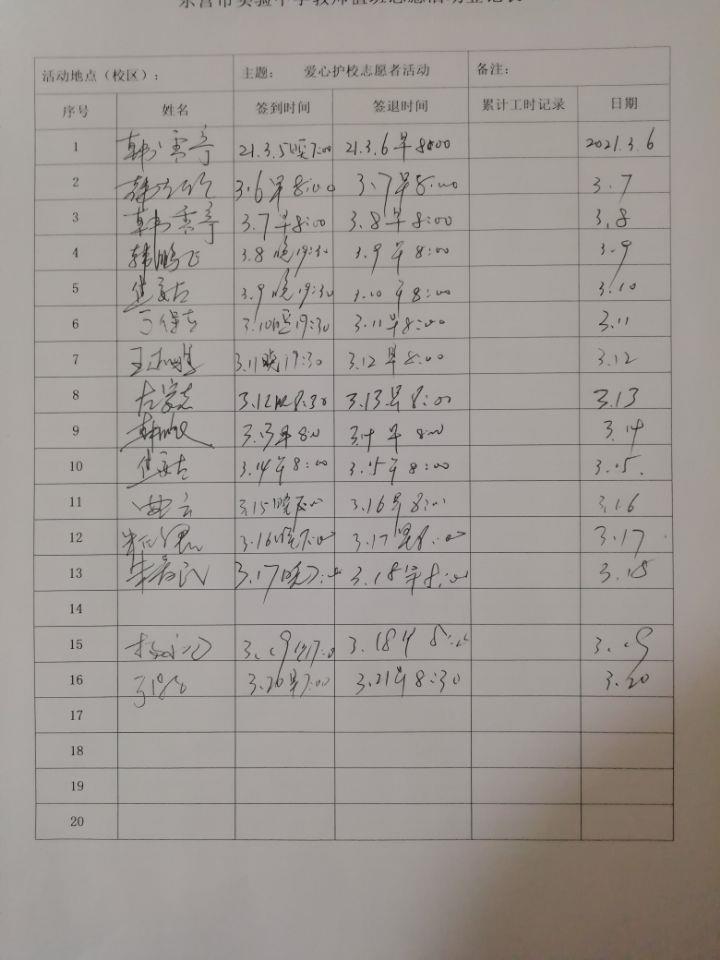 东营市实验中学教师值班志愿活动登记表
活动地点（校区）： 主题： 爱心护校志愿者活动 备注：
序号 姓名 签到时间 签退时间 累计工时记录 日期
1 韩雪亭 21.3.5晚7:00 21.3.6早8:00 2021.3.6
2 3.6早8:00 3.7早8:00 3.7
3 韩雪亭 3.7早8:00 3.8早8:00 3.8
4 韩鹏飞 3.8晚19:30 3.9早8:00 3.9
5 3.9晚19:30 3.10早8:00 3.10
6 3.10晚19:30 3.11早8:00 3.11
7 3.11晚19:30 3.12早8:00 3.12
8 3.12晚8:30 3.13早8:00 3.13
9 3.13早8:0 3.14早8:00 3.14
10 3.14早8:00 3.15早8:00 3.15.
11 曲云 3.15晚7:00 3.16早8:00 3.16
12 3.16晚7:00 3.17早8:00 3.17
13 3.17晚7:00 3.18早8:00 3.18
14
15 3.18早 8:00
16 3.20早7:00 3.21早8:30 3.20
17
18
19
20